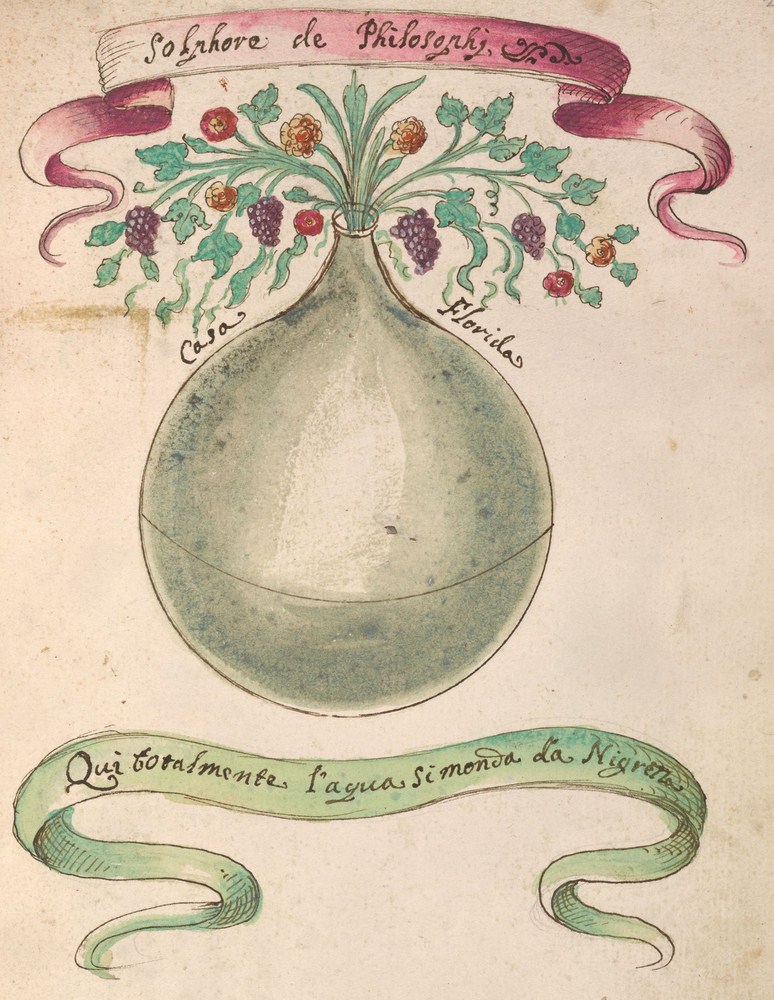 Solphore de Philosophj.
Casa Florida
Qui totalmente l'aqua si monda da Nigreza